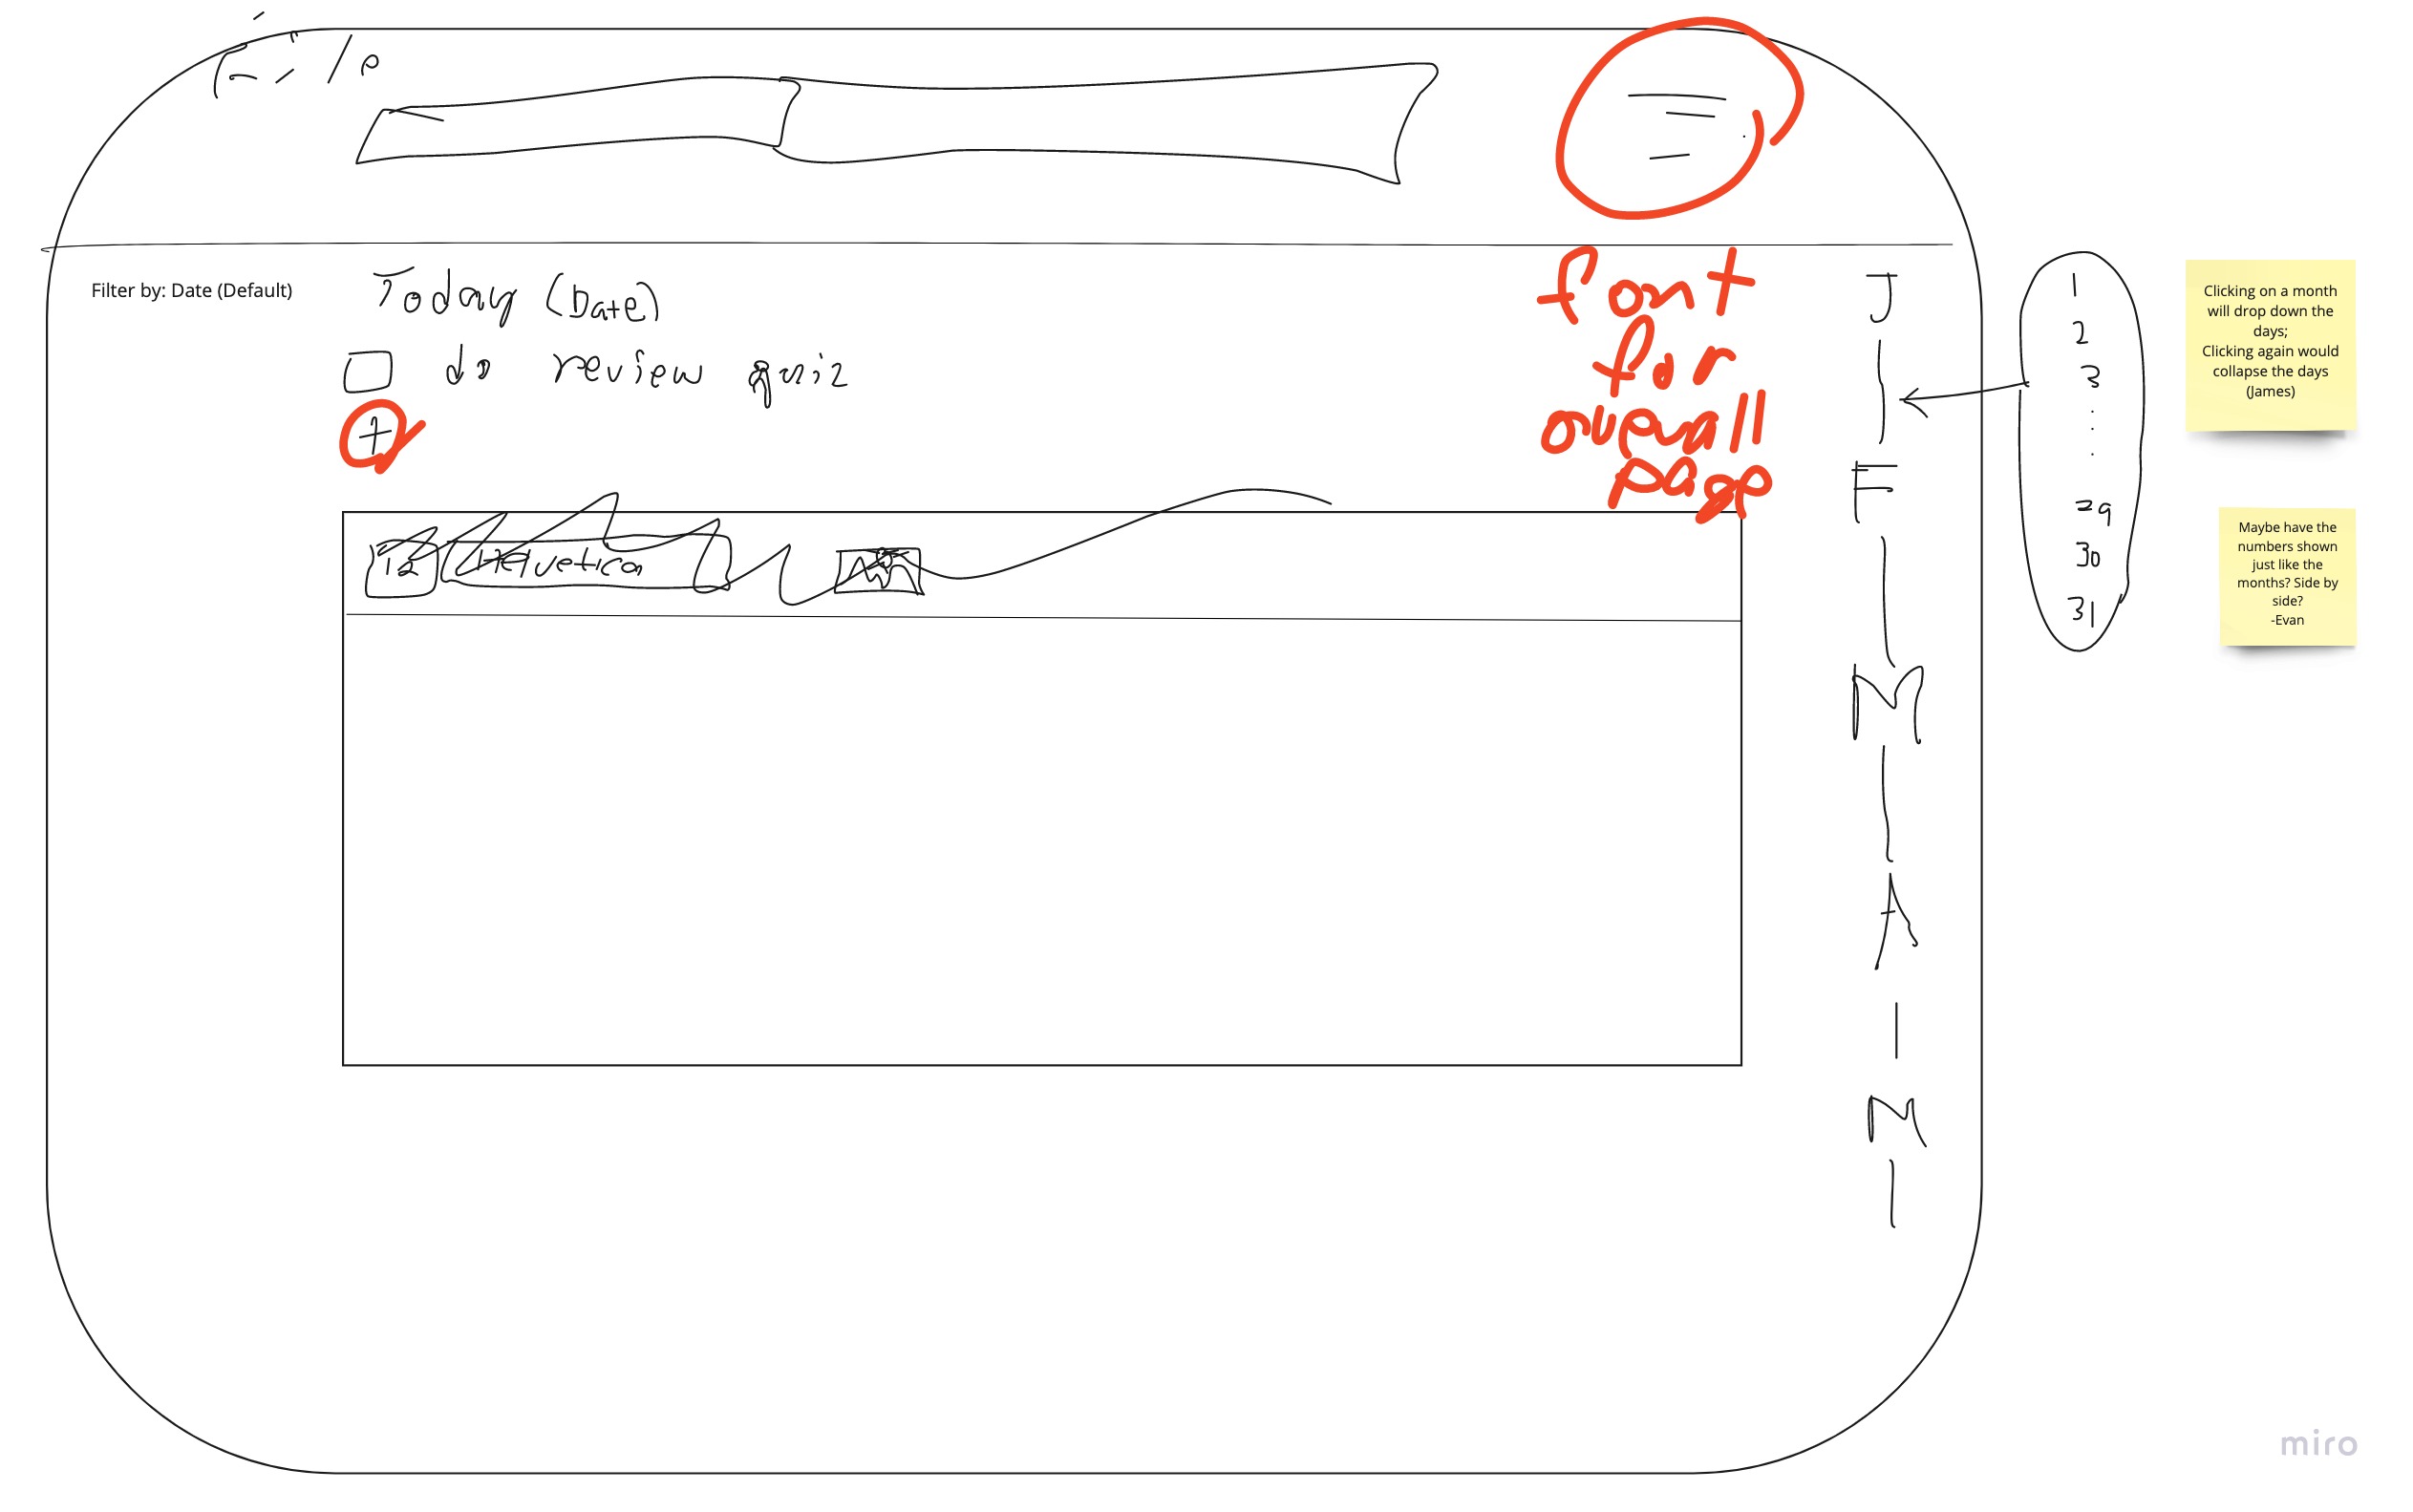 File
Filter by: Date (Default)
Today (Date)
do review quiz
+
font
for
overall
page
12 Helvetica
J
F
M
A
M
1
2
3
.
.
.
29
30
31
Clicking on a month
will drop down the
days;
Clicking again would
collapse the days
(James)
Maybe have the
numbers shown
just like the
months? Side by
side?
-Evan
miro